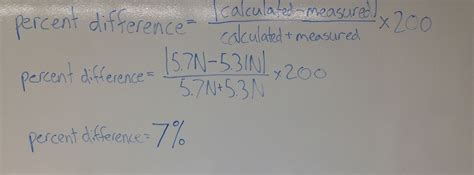 percent difference = |calculated - measured| / calculated + measured × 200
percent difference = |5.7N - 5.31N| / 5.7N + 5.3N × 200
percent difference = 7%